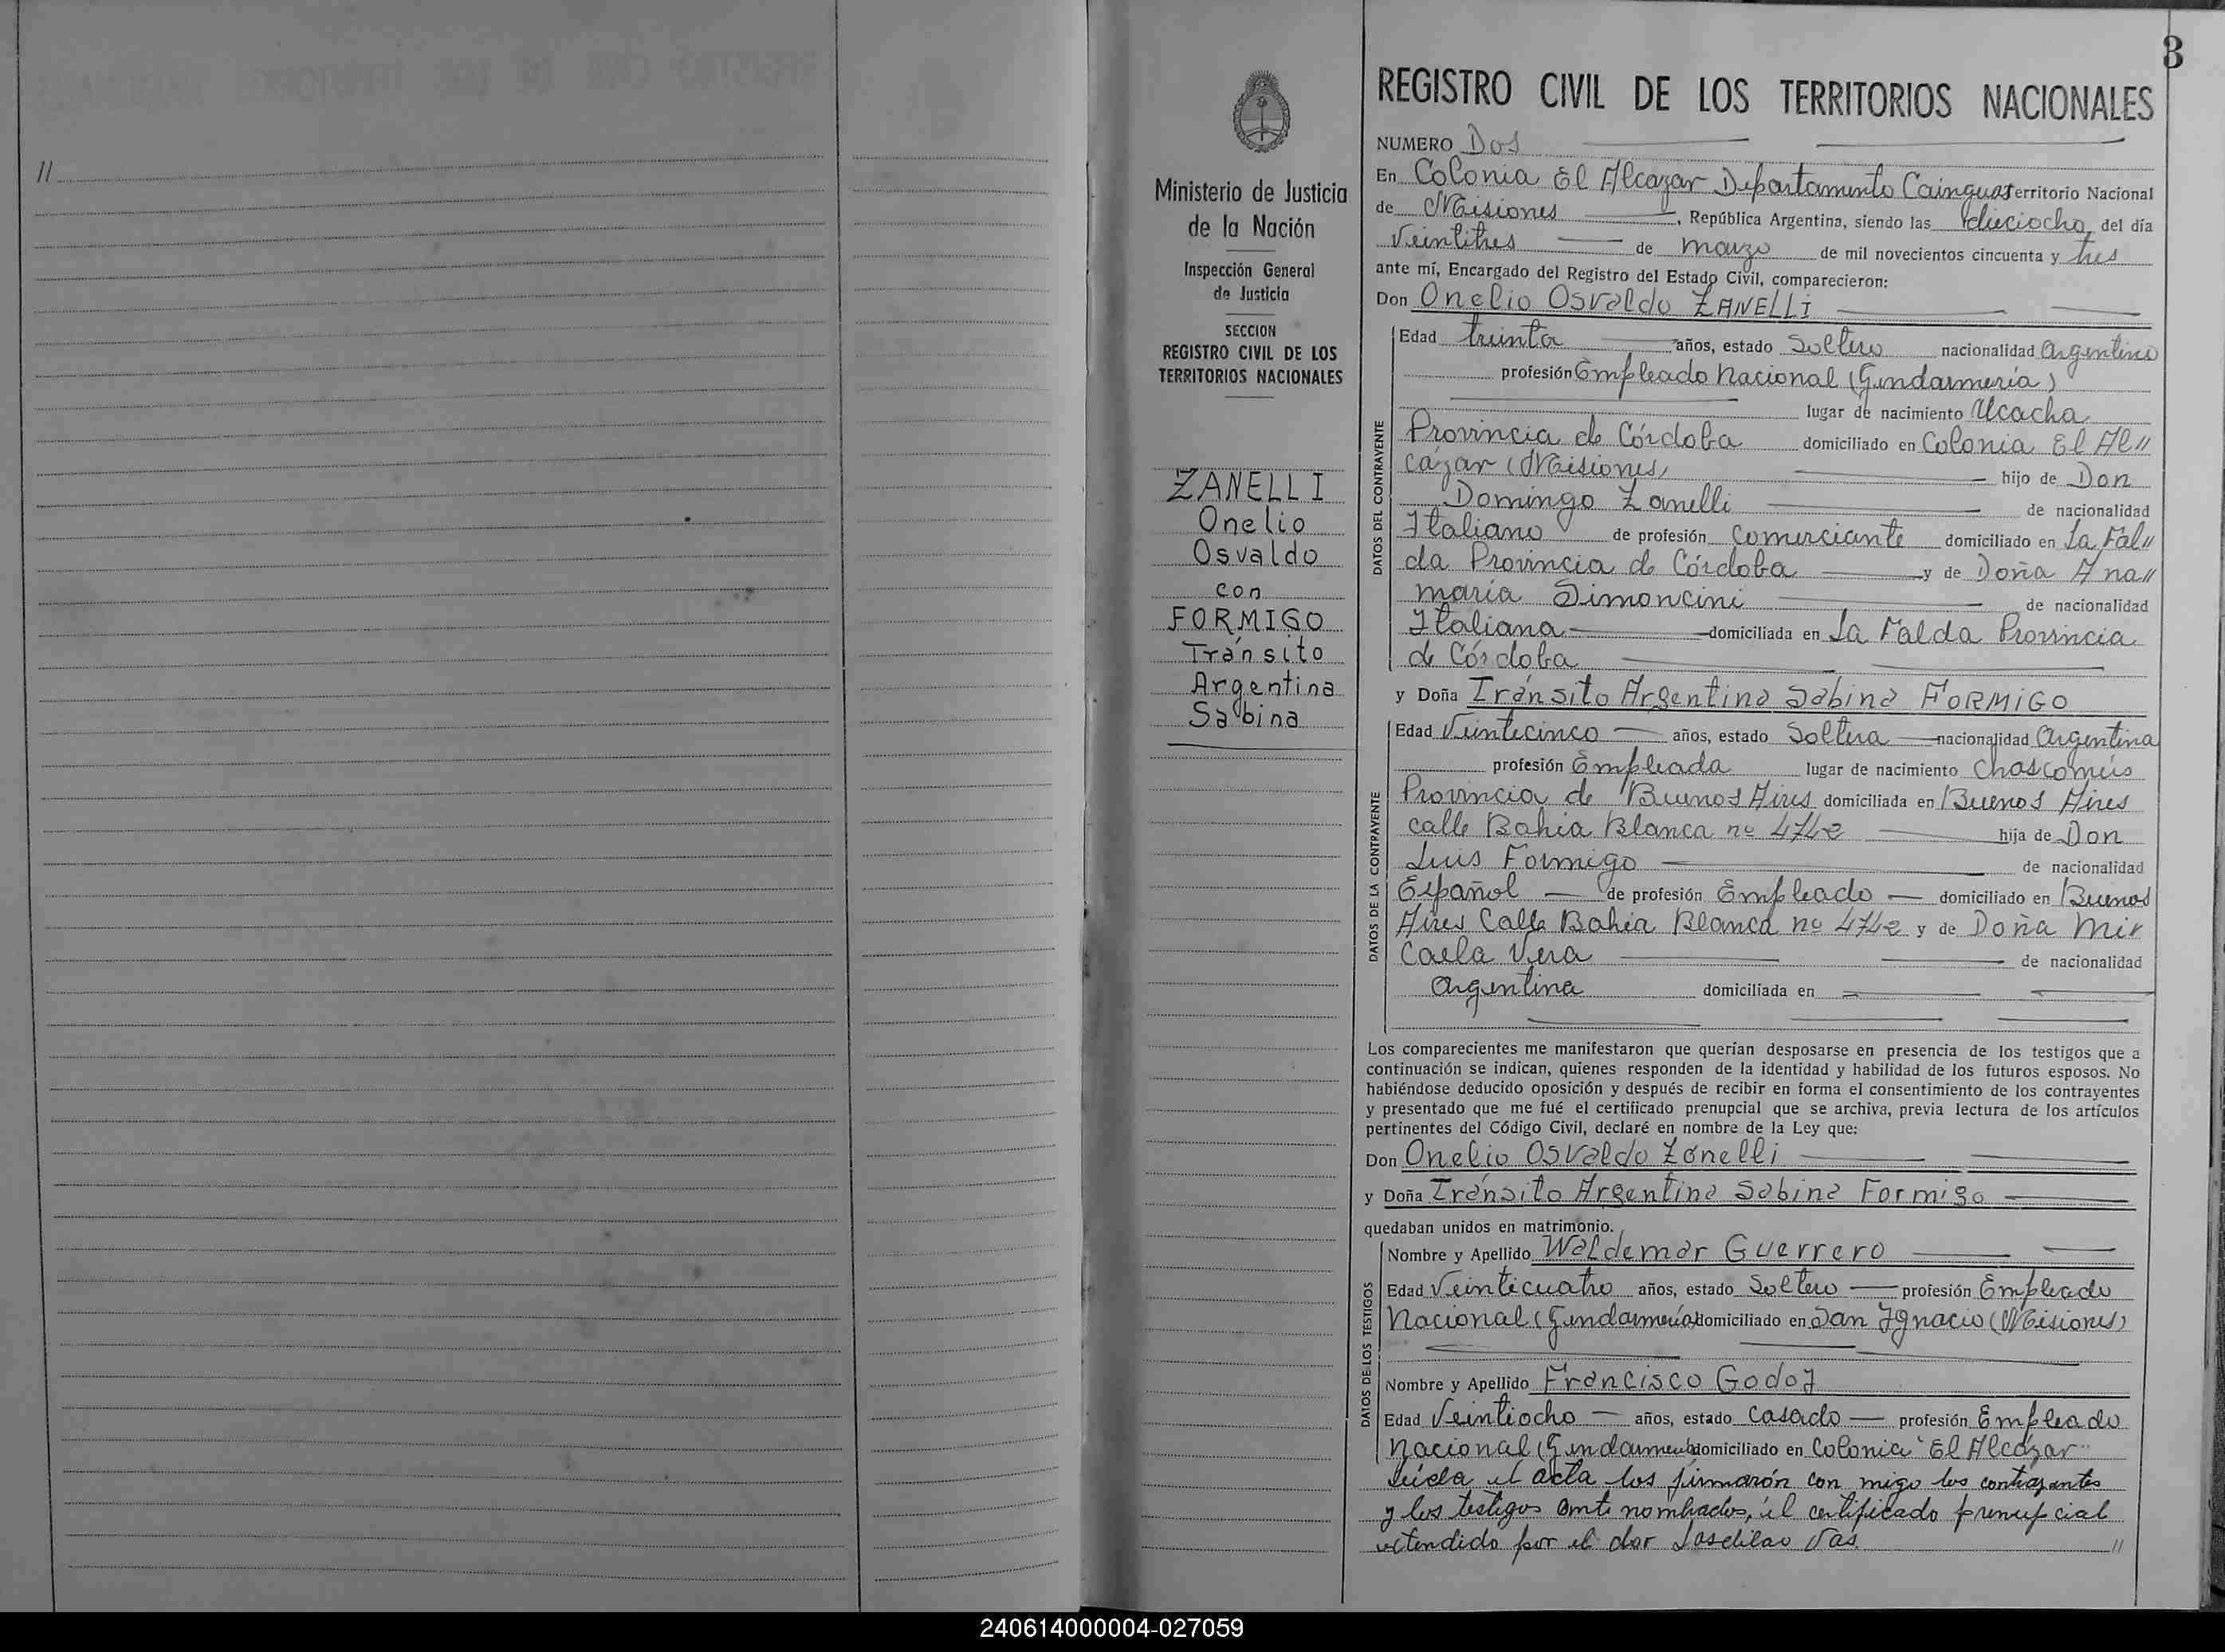 //
3
Ministerio de Justicia
de la Nación
Inspección General
de Justicia
SECCION
REGISTRO CIVIL DE LOS
TERRITORIOS NACIONALES
ZANELLI
Onelio
Osvaldo
con
FORMIGO
Tránsito
Argentina
Sabina
REGISTRO CIVIL DE LOS TERRITORIOS NACIONALES
NUMERO Dos
En Colonia El Alcazar Departamento Cainguas territorio Nacional
de Misiones, República Argentina, siendo las dieciocho del día
Veintitres de marzo de mil novecientos cincuenta y tres
ante mí, Encargado del Registro del Estado Civil, comparecieron:
Don Onelio Osvaldo ZANELLI
DATOS DEL CONTRAYENTE
Edad treinta años, estado Soltero nacionalidad Argentino
profesión Empleado Nacional (Gendarmería)
lugar de nacimiento Ucacha
Provincia de Córdoba domiciliado en Colonia El Al//
cázar (Misiones) hijo de Don
Domingo Zanelli de nacionalidad
Italiano de profesión Comerciante domiciliado en La Fal//
da Provincia de Córdoba y de Doña Ana//
maria Simoncini de nacionalidad
Italiana domiciliada en La Falda Provincia
de Córdoba
y Doña Tránsito Argentina Sabina FORMIGO
DATOS DE LA CONTRAYENTE
Edad Veintecinco años, estado Soltera nacionalidad Argentina
profesión Empleada lugar de nacimiento Chascomús
Provincia de Buenos Aires domiciliada en Buenos Aires
calle Bahia Blanca nº 4742 hija de Don
Luis Formigo de nacionalidad
Español de profesión Empleado domiciliado en Buenos
Aires Calle Bahia Blanca nº 4742 y de Doña Mi
caela Vera de nacionalidad
Argentina domiciliada en
Los comparecientes me manifestaron que querían desposarse en presencia de los testigos que a
continuación se indican, quienes responden de la identidad y habilidad de los futuros esposos. No
habiéndose deducido oposición y después de recibir en forma el consentimiento de los contrayentes
y presentado que me fué el certificado prenupcial que se archiva, previa lectura de los artículos
pertinentes del Código Civil, declaré en nombre de la Ley que:
Don Onelio Osvaldo Zanelli
y Doña Tránsito Argentina Sabina Formigo
quedaban unidos en matrimonio.
DATOS DE LOS TESTIGOS
Nombre y Apellido Waldemar Guerrero
Edad Veinticuatro años, estado Soltero profesión Empleado
Nacional (Gendarmería) domiciliado en San Ignacio (Misiones)
Nombre y Apellido Francisco Godoy
Edad Veintiocho años, estado Casado profesión Empleado
Nacional (Gendarmería) domiciliado en Colonia "El Alcázar"
Leida el acta los firmarón con migo los contrayentes
y los testigos ante nombrados, el certificado prenupcial
extendido por el dor //
240614000004-027059